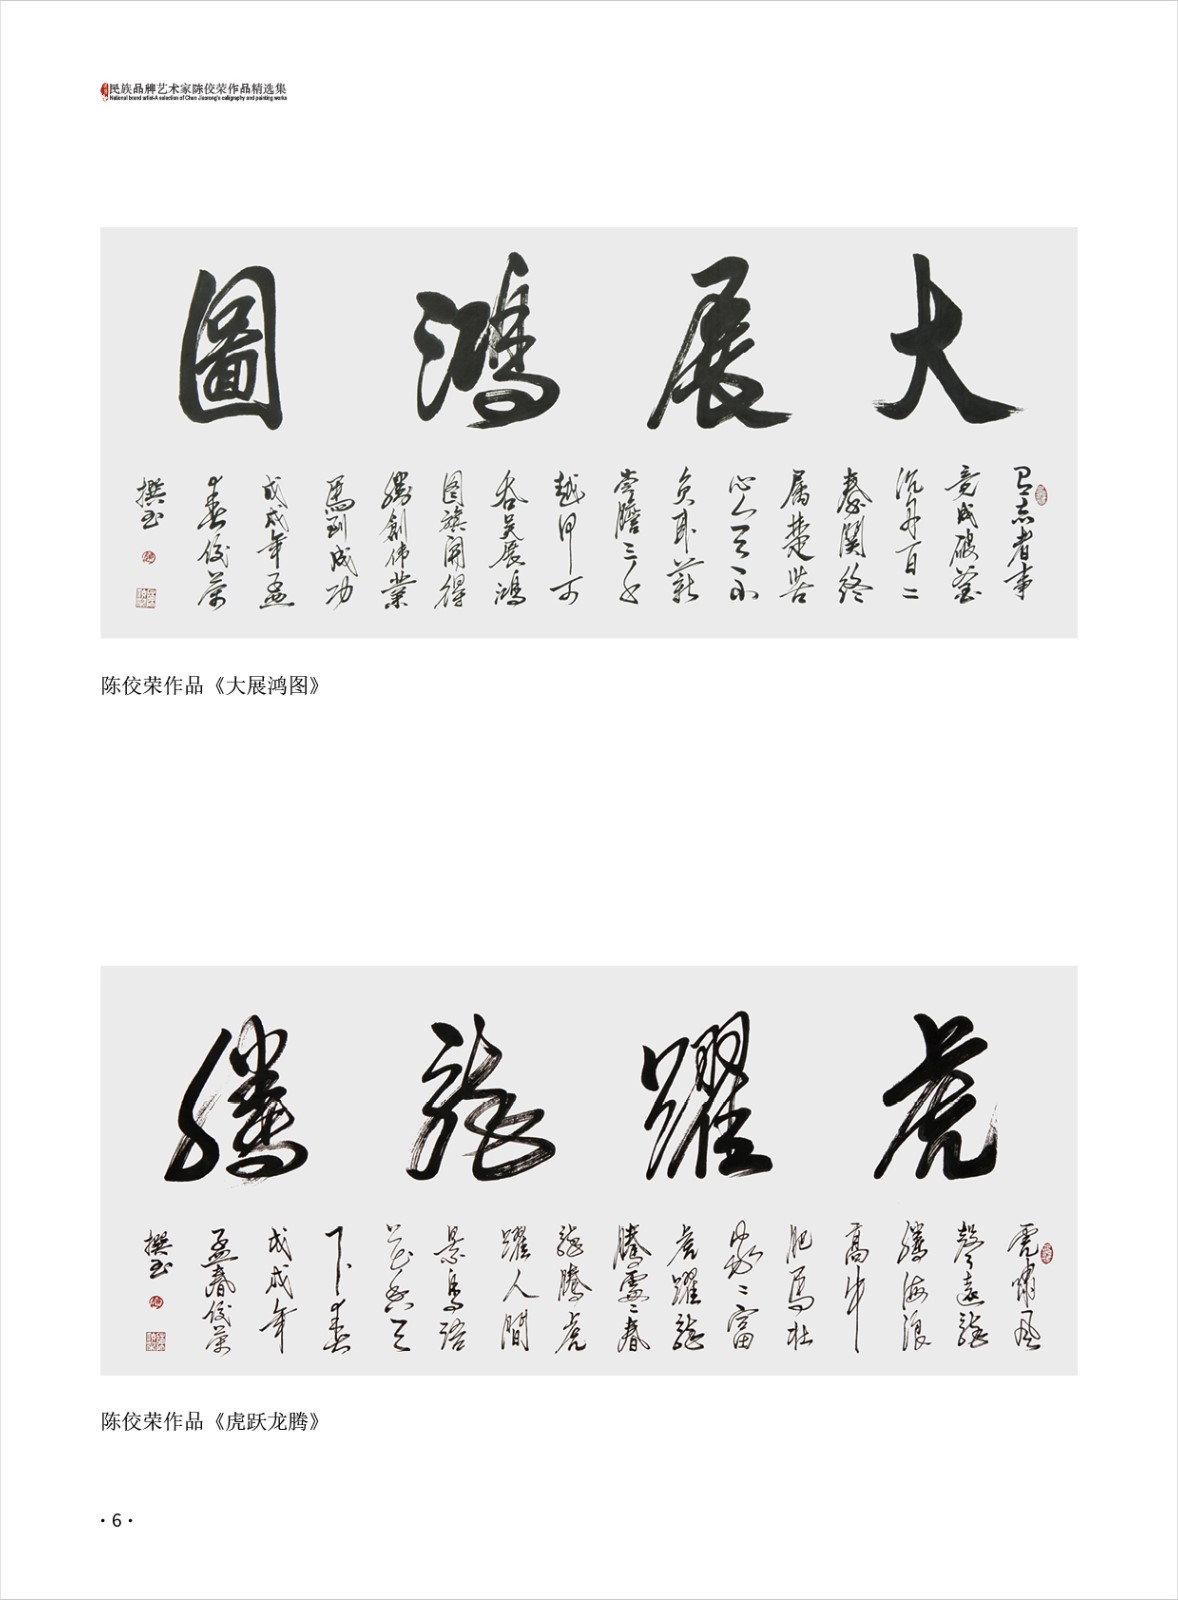 民族品牌艺术家陈佼荣作品精选集
National brand artist-A selection of Chen Jiaorong's caligraphy and painting works
大展鴻圖
有志者事
竟成破釜
沉舟百二
秦關終
屬楚苦
心人天不
負卧薪
嘗膽三千
越甲可
吞吴展鴻
图旗開得
勝創伟業
馬到成功
戊戌年孟
春佼荣
撰书
陈佼荣作品《大展鸿图》
虎躍龍騰
虎啸风
聲遠龍
騰海浪
高牛
肥馬壮
家〻富
虎躍龍
騰處〻春
龍騰虎
躍人間
景鳥语
花香天
下春
戊戌年
孟春佼荣
撰书
陈佼荣作品《虎跃龙腾》
·6·